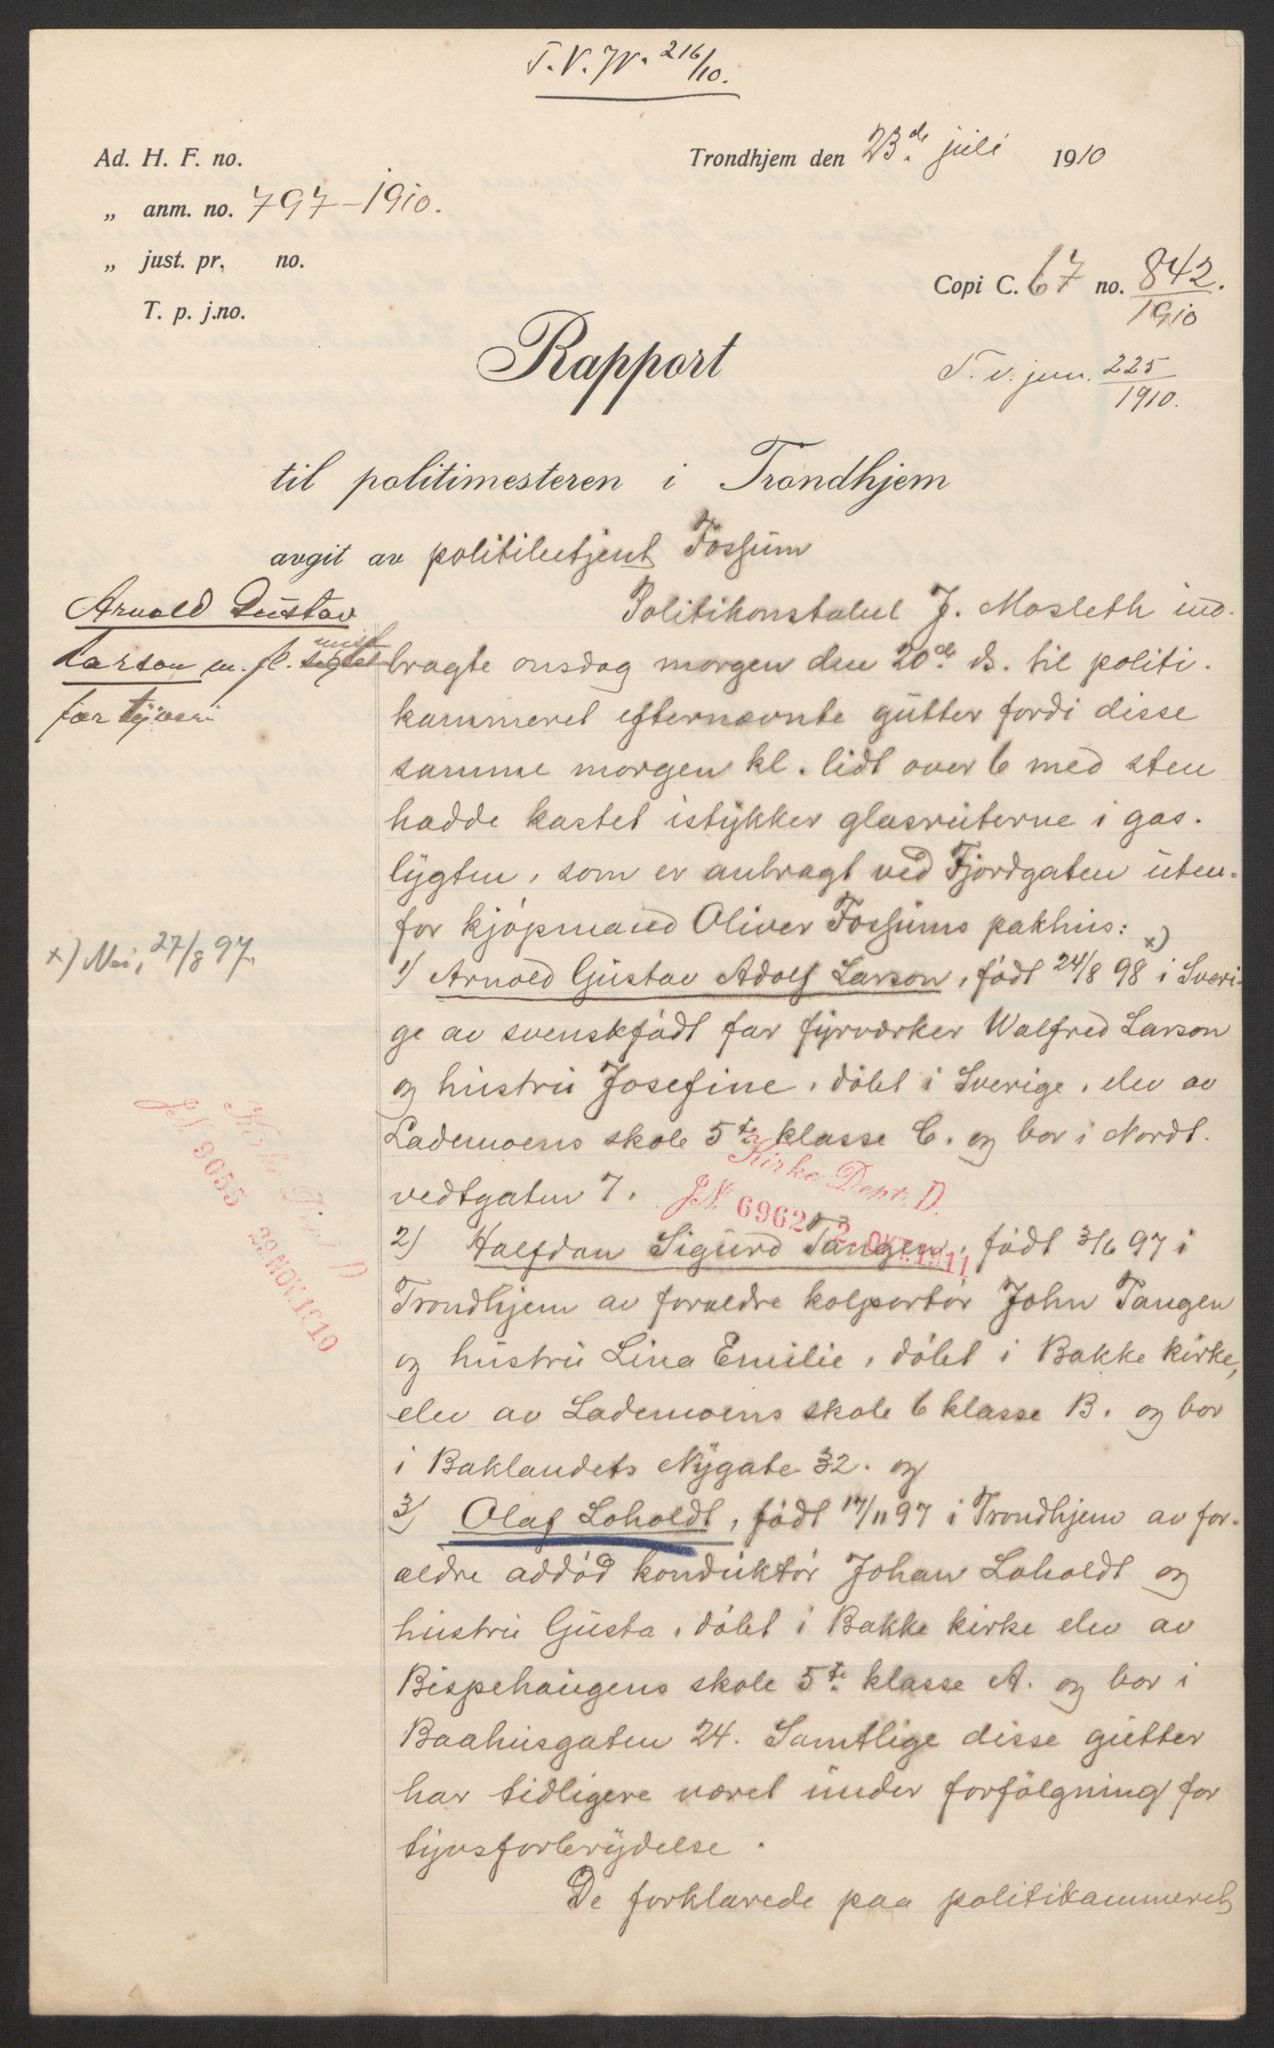 T. V. N. 216/10.
Ad. H. F. no.
Trondhjem den 23.de juli 1910
„ anm. no. 797-1910.
„ just. pr, no.
Copi C. 67 no. 842.
1910
T. p. j.no.
Rapport
T. v. jun. 225
1910.
til politimesteren i Trondhjem
avgit av politibetjent Fossum
Arnold Gustav
Larson m. fl.
for tyveri
Politikonstabel J. Mosleth ind-
bragte onsdag morgen den 20de ds. til politi-
kammeret efternævnte gutter fordi disse
samme morgen kl. lidt over 6 med sten
hadde kastet istykker glasruterne i gas-
lygten, som er anbragt ved Fjordgaten uten-
for kjøpmand Oliver Fossums pakhus:
x) Nei, 27/8 97.
1) Arnold Gustav Adolf Larson, født 24/8 98 x) i Sveri-
ge av svenskfødt far fyrværker Walfred Larson
og hustru Josefine, døbt i Sverige, elev av
Lademoens skole 5te klasse C. og bor i Nordt-
vedtgaten 7.
Kirke Dept. D.
J.N. 6962 2. OKT. 1911
Kirke Dept. D
J.N. 9055 29. NOV. 1910
2) Halfdan Sigurd Tangen, født 3/6 97 i
Trondhjem av forældre kolportør John Tangen
og hustru Lina Emilie, døbt i Bakke kirke,
elev av Lademoens skole 6 klasse B. og bor
i Baklandets Nygate 32. og
3) Olaf Loholdt, født 17/11 97 i Trondhjem av for-
ældre addød konduktør Johan Loholdt og
hustru Gusta, døbt i Bakke kirke elev av
Bispehaugens skole 5te klasse A. og bor i
Baahusgaten 24. Samtlige disse gutter
har tidligere været under forfølgning for
tyvsforbrydelse.
De forklarede paa politikammeret